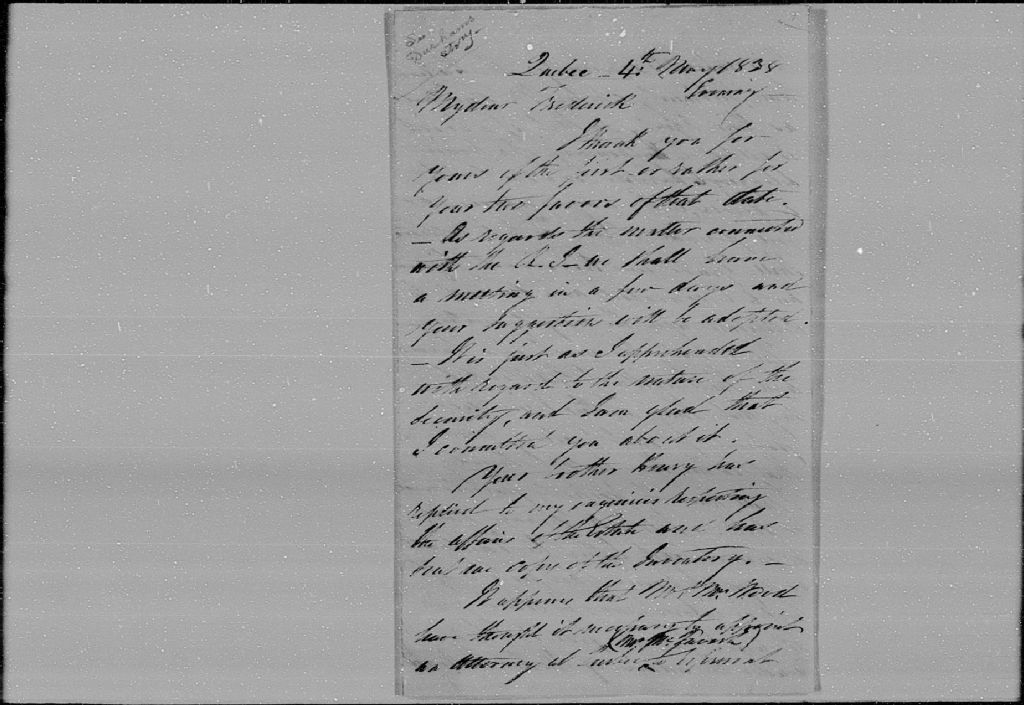 Quebec - 4th May 1838
Evening
My dear Frederick
I thank you for
yours of the first or rather for
your two favors of that date.
- As regards the matter connected
with the R. I - we shall have
a meeting in a few days and
your suggestions will be adopted.
- It is just as I apprehended
with regard to the nature of the
security, and I am glad that
I consulted you about it.
Your brother Henry has
replied to my enquiries respecting
the affairs of the Estate and has
sent me copies of the Inventory. -
It appears that Mr. & Mrs. Wood
have thought it necessary to appoint
an Attorney at to represent